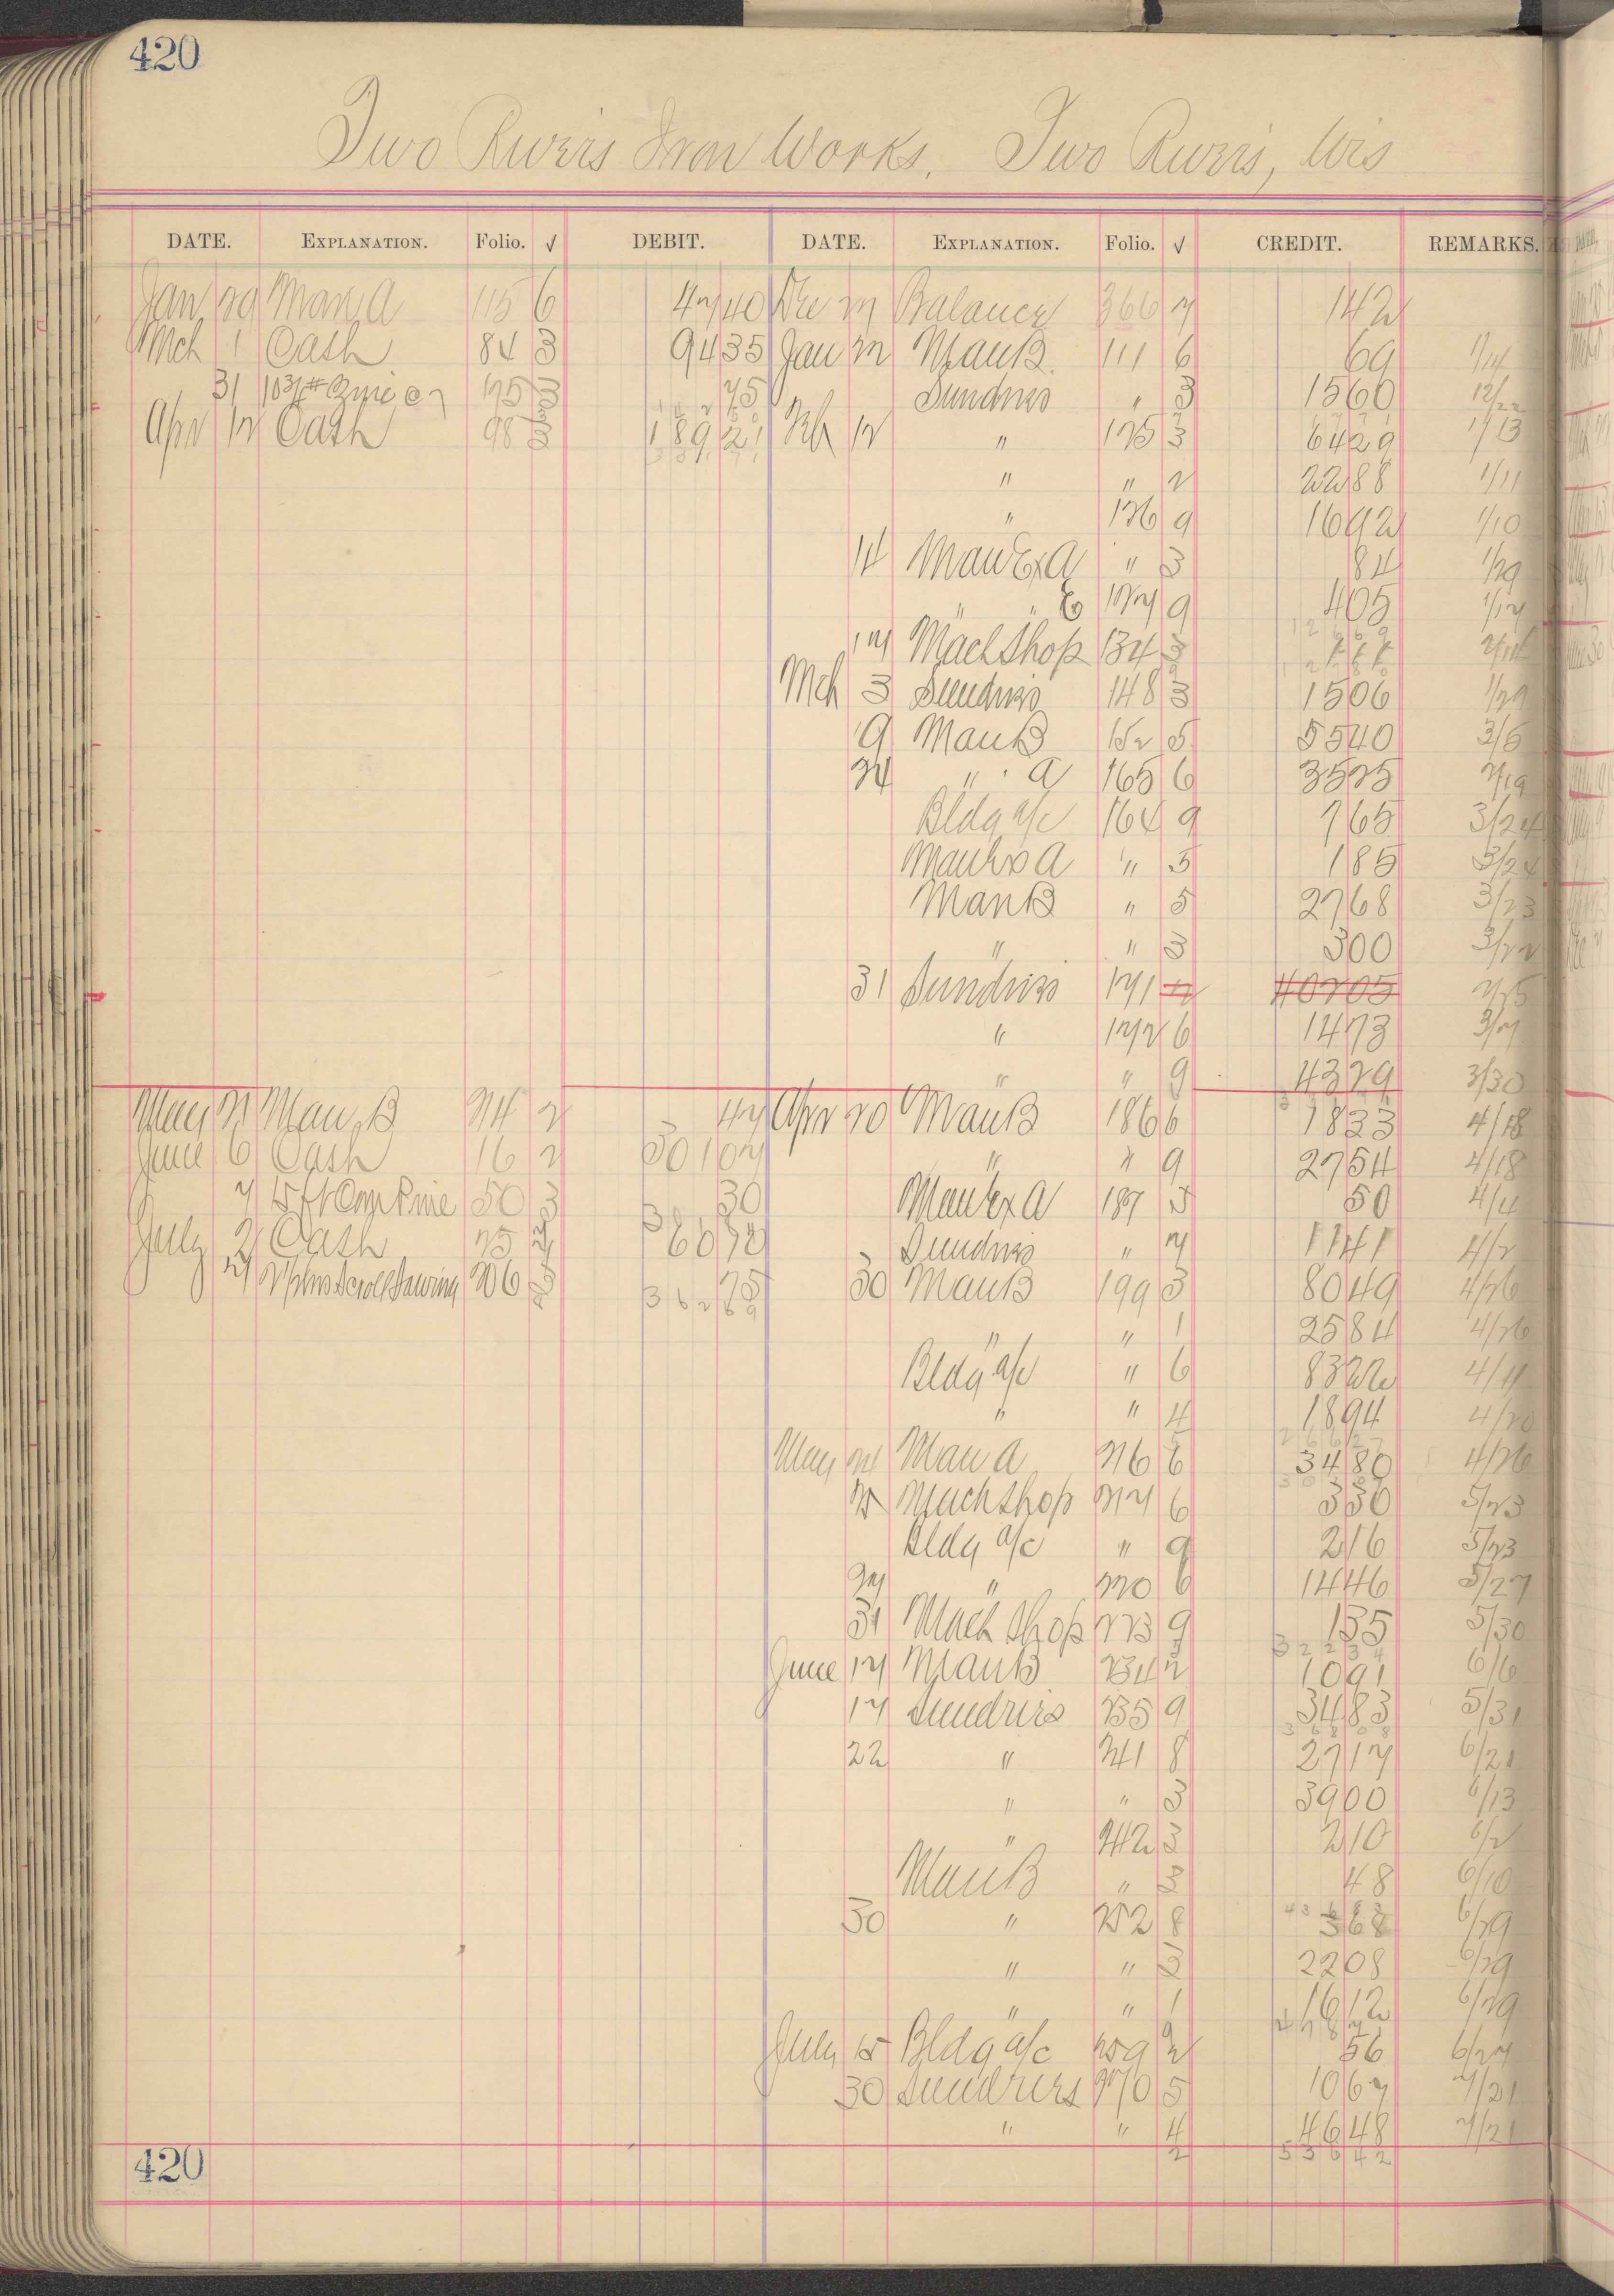 420
Two Rivers Iron Works, Two Rivers, Wis
DATE. EXPLANATION. Folio. √ DEBIT. DATE. EXPLANATION. Folio. √ CREDIT. REMARKS.
Jan 29 Man A 115 6 47 40 Dec 27 Balance 366 7 1 42
Mch 1 Cash 84 3 94 35 Jan 22 Man B. 111 6 69
31 75 Sundries " 3 15 60 12/22
Apr 12 Cash 98 Feb 12 " 125 3 64 29 1/13
" " 2 22 88 1/11
" 126 9 16 92 1/10
14 Man Ex A " 3 84 1/29
" " 127 9 4 05 1/17
17 Mach Shop 134
Mch 3 Sundries 148 3 15 06 1/29
9 Man B 152 5 55 40 3/5
24 " A 165 6 35 25 2/19
Bldg a/c 164 9 7 65 3/24
Man Ex A " 5 1 85 3/24
Man B " 5 27 68 3/23
" " 3 3 00 3/22
31 Sundries 171 402 05 2/25
" 172 6 14 73 3/7
" " 9 43 29 3/30
May 21 Man B 214 2 47 Apr 20 Man B 186 6 18 33 4/18
June 6 Cash 16 2 301 07 " " 9 27 54 4/18
7 15 ft Com Pine 50 3 30 Man Ex A 187 3 50 4/4
July 2 Cash 75 60 72 Sundries " 7 11 41 4/2
Scroll Sawing 206 75 30 Man B 199 3 80 49 4/26
" " 1 25 84 4/26
Bldg a/c " 6 83 22 4/11
" " 4 18 94 4/20
May 24 Man A 216 6 34 80 4/26
25 Mach Shop 217 6 3 30 5/23
Bldg a/c " 9 2 16 5/23
27 " 220 6 14 46 5/27
31 Mach Shop 223 9 1 35 5/30
June 17 Man B 234 2 10 91 6/6
17 Sundries 235 9 34 83 5/31
22 " 241 8 27 17 6/21
" " 3 39 00 6/13
" 242 3 2 10 6/2
Man B " 3 48 6/10
30 " 252 8 3 68 6/29
" " 3 22 08 6/29
" " 1 16 12 6/29
July 15 Bldg a/c 259 2 56 6/27
30 Sundries 270 5 10 67 7/21
" " 4 46 48 7/21
2 536 42
420